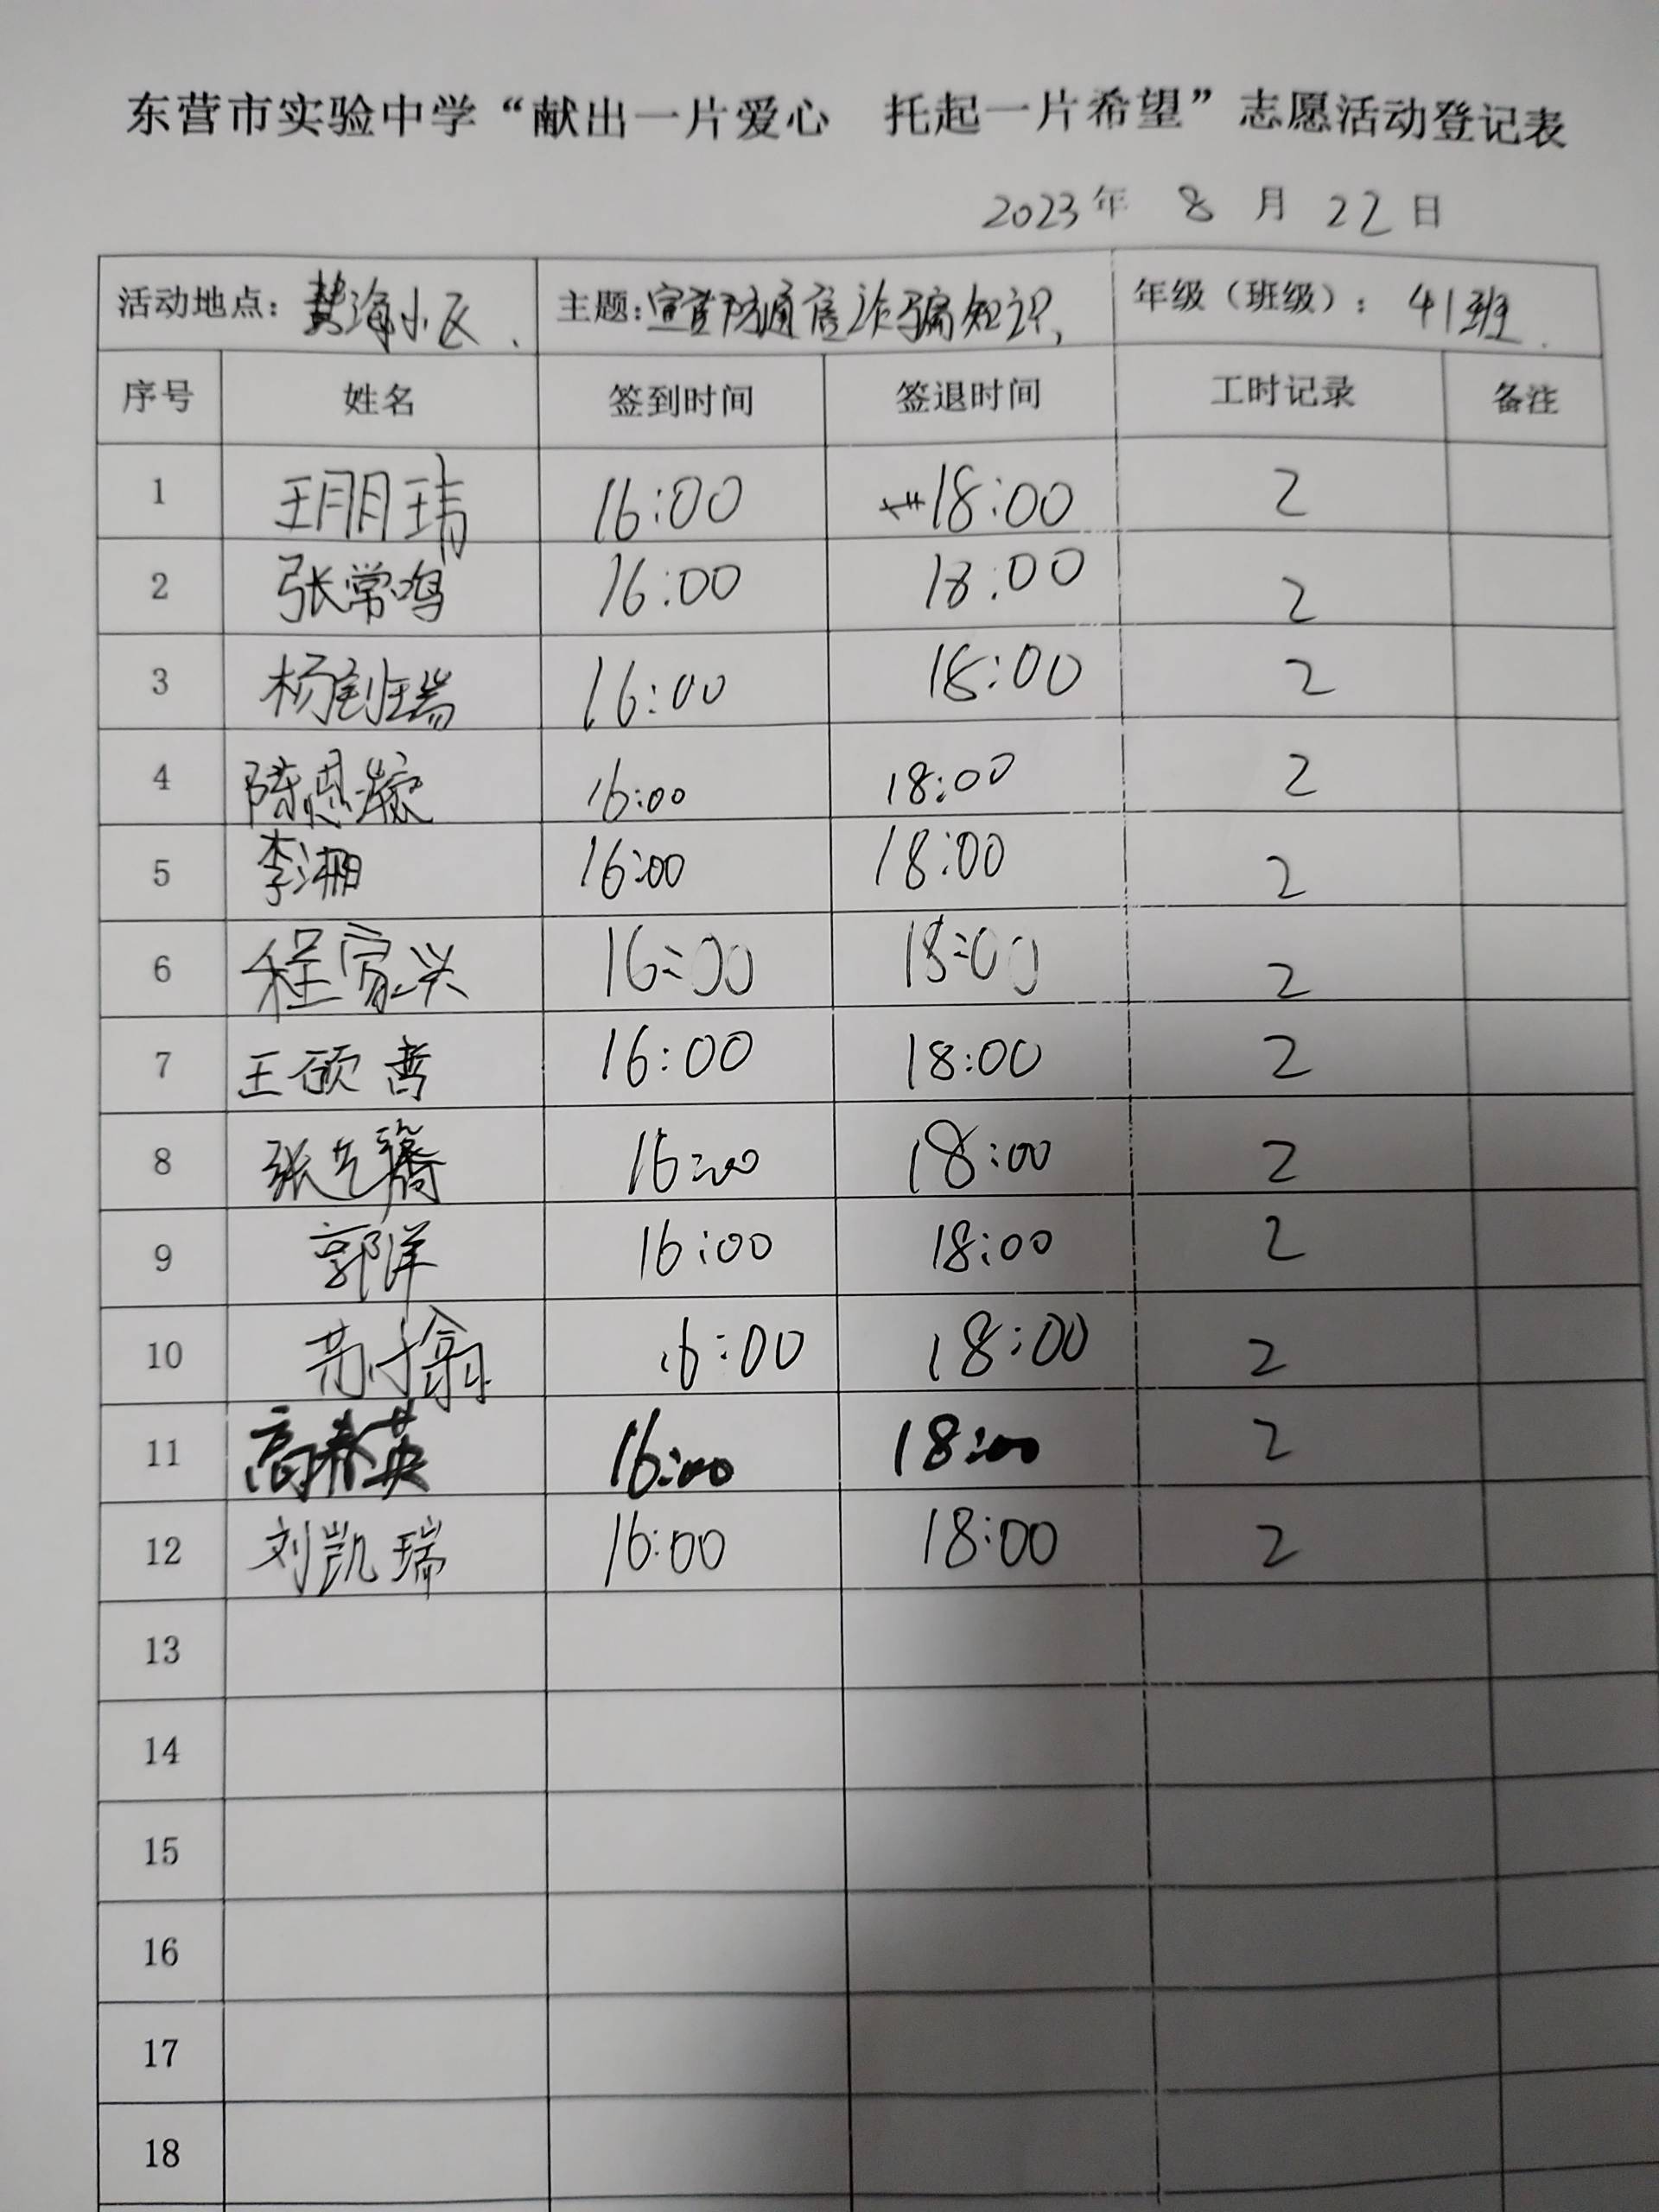 东营市实验中学“献出一片爱心 托起一片希望”志愿活动登记表
2023年 8 月 22 日
活动地点：黄海小区. 主题：宣言防通信诈骗知识, 年级（班级）：41班.
序号 姓名 签到时间 签退时间 工时记录 备注
1 王玥玮 16:00 18:00 2
2 张常鸣 16:00 18:00 2
3 杨 瑞 16:00 18:00 2
4 陈思 16:00 18:00 2
5 李湘 16:00 18:00 2
6 程家兴 16:00 18:00 2
7 王硕哲 16:00 18:00 2
8 张艺馨 16:00 18:00 2
9 郭洋 16:00 18:00 2
10 苏子翕 16:00 18:00 2
11 高春英 16:00 18:00 2
12 刘凯瑞 16:00 18:00 2
13
14
15
16
17
18